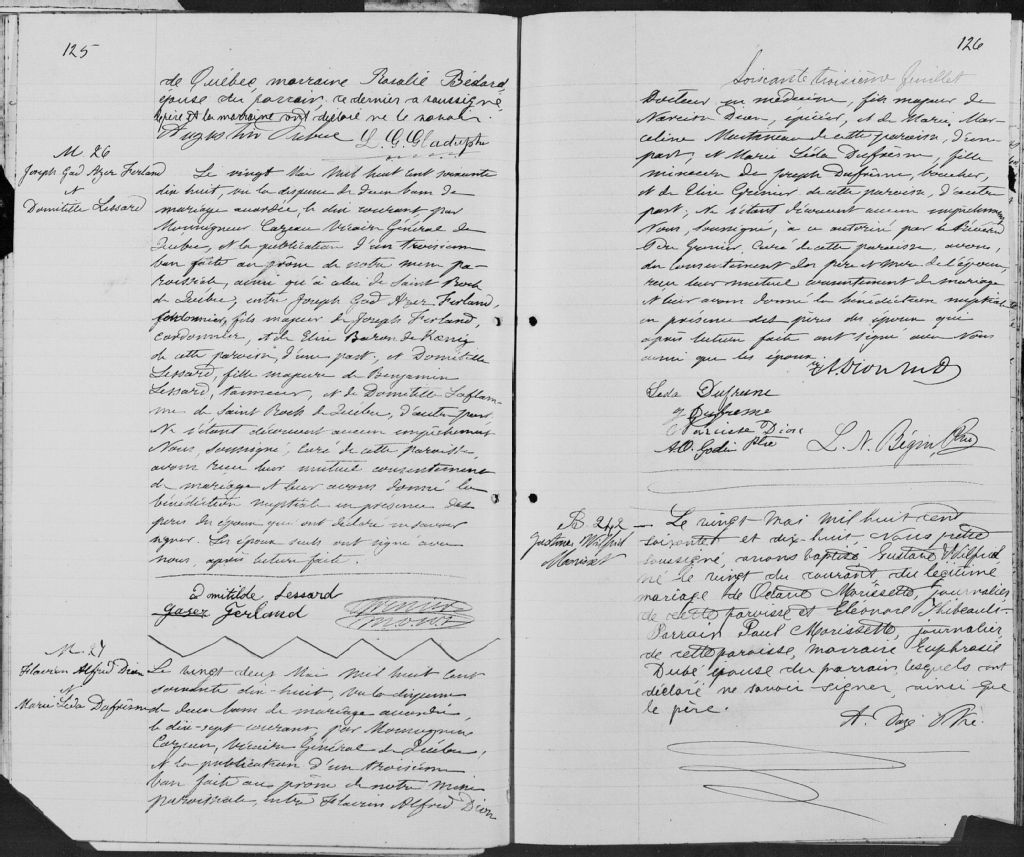 125
de Québec, marraine Rosalie Bédard,
épouse du parrain, ce dernier a soussigné
père et la marraine ont déclaré ne le savoir.
L. G. Gladu, Ptre
M. 26
Joseph Gad Azer Ferland
et
Domitille Lessard
Le vingt Mai Mil huit cent soixante
dix huit, vu la dispense de deux bans de
mariage accordée, le dix courant par
Monseigneur Cazeau Vicaire Général de
Québec, et la publication d'un troisième
ban faite au prône de notre messe pa-
roissiale, ainsi qu'à celui de Saint Roch
de Québec, entre Joseph Gad Azer Ferland,
cordonnier, fils majeur de Joseph Ferland,
cordonnier, et de Elise Baron de Kœnig
de cette paroisse, d'une part, et Domitille
Lessard, fille majeure de Benjamin
Lessard, tanneur, et de Domitille Laflam-
me de Saint Roch de Québec, d'autre part,
Ne s'étant découvert aucun empêchement
Nous, soussigné, Curé de cette paroisse,
avons reçu leur mutuel consentement
de mariage et leur avons donné la
bénédiction nuptiale en présence des
pères des époux qui ont déclaré ne savoir
signer. Les époux seuls ont signé avec
nous, après lecture faite.
Domitilde Lessard
Gaser Ferland
M. 27
Flavien Alfred Dion
et
Marie Léda Dufresne
Le vingt deux Mai Mil huit cent
soixante dix-huit, Vu la dispense
de deux bans de mariage accordée,
le dix-sept courant, par Monseigneur
Cazeau, Vicaire Général de Québec,
et la publication d'un troisième
ban faite au prône de notre messe
paroissiale, entre Flavien Alfred Dion
126
Soixante troisième feuillet
Docteur en médecine, fils majeur de
Narcisse Dion, épicier, et de Marie Mar-
celine Martineau de cette paroisse, d'une
part, et Marie Léda Dufresne, fille
mineure de Joseph Dufresne, boucher,
et de Elise Grenier de cette paroisse, d'autre
part; Ne s'étant découvert aucun empêchement
Nous, soussigné, à ce autorisé par le Révérend
curé de cette paroisse, avons,
du consentement des père et mère de l'épouse,
reçu leur mutuel consentement de mariage
et leur avons donné la bénédiction nuptiale
en présence des pères des époux qui
après lecture faite ont signé avec Nous
ainsi que les époux.
A. Dion M.D.
Leda Dufresne
J Dufresne
Narcisse Dion
A.O. Godin Ptre
L. N. Bégin, Ptre
Le vingt Mai mil huit cent
soixante et dix-huit, Nous prêtre
soussigné, avons baptisé Gustave Wilfrid
né le vingt du courant du légitime
mariage de Octave Morissette, journalier
de cette paroisse et Eléonore Thibeault
Parrain Paul Morissette, journalier
de cette paroisse, marraine Euphrasie
Dubé épouse du parrain, lesquels ont
déclaré ne savoir signer, ainsi que
le père.